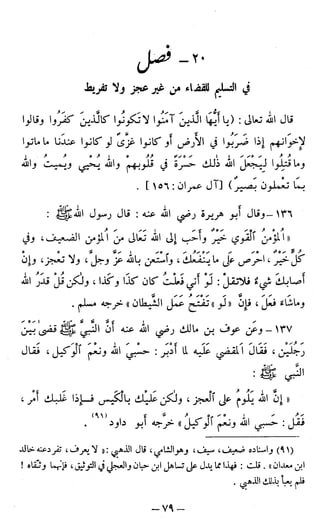 ٢٠ - فصل
في التسليم للقضاء من غير عجز ولا تفريط
قال الله تعالى : ( يا أَيُّهَا الَّذِينَ آمَنُوا لا تَكُونُوا كَالَّذِينَ كَفَرُوا وقالوا
لإِخْوَانِهِم إذا ضَرَبُوا في الأرْضِ أو كانوا غُزًّى لو كانوا عِنْدَنا ما ماتوا
وما قُتِلُوا لِيَجْعَلَ الله ذلك حَسْرَةً في قُلُوبِهِمْ والله يُحْيِي ويُمِيتُ والله
بِمَا تَعْمَلُونَ بَصِيرٌ ) [آل عمران : ١٥٦] .
١٣٦ - وقال أبو هريرة رضي الله عنه : قال رسول الله ﷺ :
« المُؤْمِنُ القَوِيُّ خَيْرٌ وأَحَبُّ إلى الله تَعَالى مِنَ المُؤْمِنِ الضَعيفِ ، وفي
كُلٍّ خَيْرٌ ، احْرِصْ على ما يَنْفَعُكَ ، واسْتَعِنْ بالله عزَّ وجلَّ ، ولا تَعْجَزْ ، وإنْ
أصابَكَ شيءٌ فلا تَقُلْ : لَوْ أني فَعَلْتُ كانَ كَذَا وكَذَا ، ولكن قُلْ قَدَرُ الله
وما شاءَ فَعَلَ ، فإنَّ « لَوْ » تَفْتَحُ عَمَلَ الشَّيْطان » خرجه مسلم .
١٣٧ - وعَن عوف بن مالك رضي الله عنه أنَّ النَّبِيَّ ﷺ قَضَىٰ بَيْنَ
رَجُلَيْنِ ، فَقَالَ المَقْضِيُّ عَلَيْهِ لما أَدْبَرَ : حَسْبِيَ الله ونِعْمَ الْوَكيلُ ، فَقال
النَّبِي ﷺ :
« إِنَّ الله يَلُومُ على العَجْزِ ، ولكن عَلَيْكَ بِالْكَيْسِ فَإِذَا غَلَبَكَ أَمْرٌ ،
فَقُلْ : حَسْبِيَ الله ونِعْمَ الوَكِيلُ » خَرَّجه أبو داود(٩١) .
(٩١) واسناده ضعيف ، سيف ، وهو الشامي ، قال الذهبي : « لا يعرف ، تفرد عنه خالد
ابن معدان » . قلت : فهذا مما يدل على تساهل ابن حبان والعجلي في التوثيق ، فإنهما وثقاه !
فلم يعبأ بذلك الذهبي .
- ٧٩ -